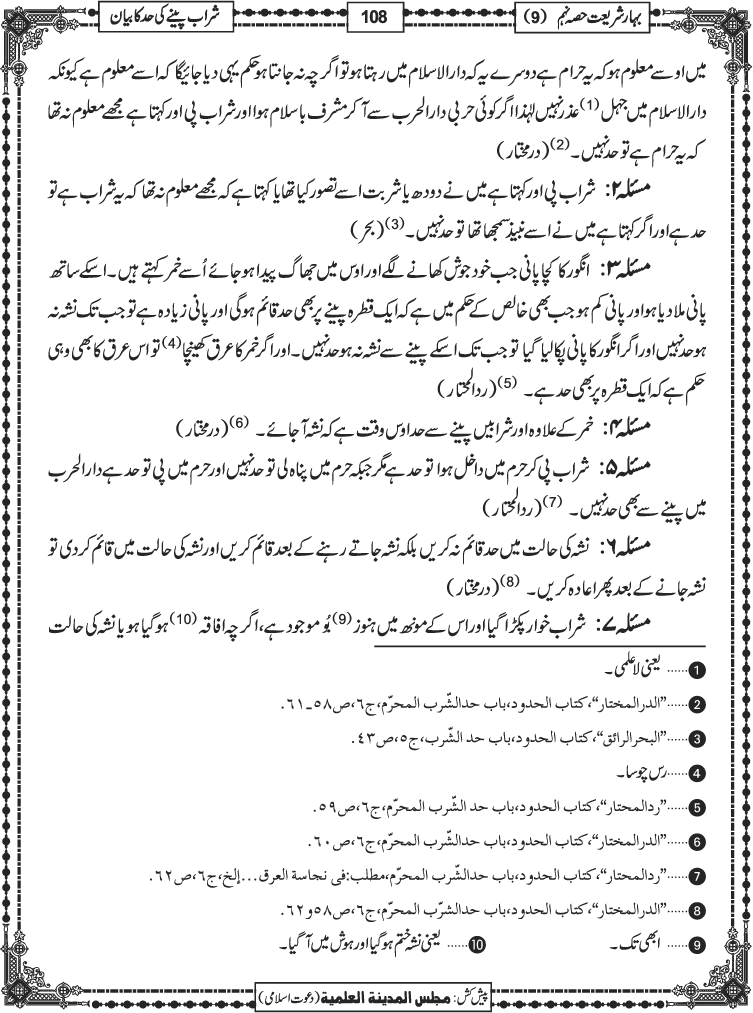 بہار شریعت حصہ نہم (9)
108
شراب پینے کی حد کا بیان
میں اوسے معلوم ہو کہ یہ حرام ہے دوسرے یہ کہ دارالاسلام میں رہتا ہو تو اگرچہ نہ جانتا ہو حکم یہی دیا جائیگا کہ اسے معلوم ہے کیونکہ
دارالاسلام میں جہل (1) عذر نہیں لہٰذا اگر کوئی حربی دارالحرب سے آکر مشرف باسلام ہوا اور شراب پی اور کہتا ہے مجھے معلوم نہ تھا
کہ یہ حرام ہے تو حد نہیں۔ (2) (درمختار)
مسئلہ ۲: شراب پی اور کہتا ہے میں نے دودھ یا شربت اسے تصور کیا تھا یا کہتا ہے کہ مجھے معلوم نہ تھا کہ یہ شراب ہے تو
حد ہے اور اگر کہتا ہے میں نے اسے نبیذ سمجھا تھا تو حد نہیں۔ (3) (بحر)
مسئلہ ۳: انگور کا کچا پانی جب خود جوش کھانے لگے اور اوس میں جھاگ پیدا ہو جائے اُسے خمر کہتے ہیں۔ اسکے ساتھ
پانی ملا دیا ہو اور پانی کم ہو جب بھی خالص کے حکم میں ہے کہ ایک قطرہ پینے پر بھی حد قائم ہوگی اور پانی زیادہ ہے تو جب تک نشہ نہ
ہو حد نہیں اور اگر انگور کا پانی پکا لیا گیا تو جب تک اسکے پینے سے نشہ نہ ہو حد نہیں۔ اور اگر خمر کا عرق کھینچا (4) تو اس عرق کا بھی وہی
حکم ہے کہ ایک قطرہ پر بھی حد ہے۔ (5) (ردالمحتار)
مسئلہ ۴: خمر کے علاوہ اور شرابیں پینے سے حد اوس وقت ہے کہ نشہ آ جائے۔ (6) (درمختار)
مسئلہ ۵: شراب پی کر حرم میں داخل ہوا تو حد ہے مگر جبکہ حرم میں پناہ لی تو حد نہیں اور حرم میں پی تو حد ہے دارالحرب
میں پینے سے بھی حد نہیں۔ (7) (ردالمحتار)
مسئلہ ۶: نشہ کی حالت میں حد قائم نہ کریں بلکہ نشہ جاتے رہنے کے بعد قائم کریں اور نشہ کی حالت میں قائم کر دی تو
نشہ جانے کے بعد پھر اعادہ کریں۔ (8) (درمختار)
مسئلہ ۷: شراب خوار پکڑا گیا اور اس کے مونھ میں ہنوز (9) بُو موجود ہے، اگرچہ افاقہ (10) ہو گیا ہو یا نشہ کی حالت
1 ......یعنی لاعلمی۔
2 ......”الدرالمختار“، کتاب الحدود، باب حدالشّرب المحرّم، ج٦، ص٥٨-٦١.
3 ......”البحرالرائق“، کتاب الحدود، باب حد الشّرب، ج٥، ص٤٣.
4 ......رس چوسا۔
5 ......”ردالمحتار“، کتاب الحدود، باب حد الشّرب المحرّم، ج٦، ص٥٩.
6 ......”الدرالمختار“، کتاب الحدود، باب حدالشّرب المحرّم، ج٦، ص٦٠.
7 ......”ردالمحتار“، کتاب الحدود، باب حدالشّرب المحرّم، مطلب: فی نجاسة العرق...إلخ، ج٦، ص٦٢.
8 ......”الدرالمختار“، کتاب الحدود، باب حدالشرّب المحرّم، ج٦، ص٥٨و٦٢.
9 ......ابھی تک۔ 10 ......یعنی نشہ ختم ہو گیا اور ہوش میں آ گیا۔
پیش کش: مجلس المدینة العلمیة (دعوت اسلامی)